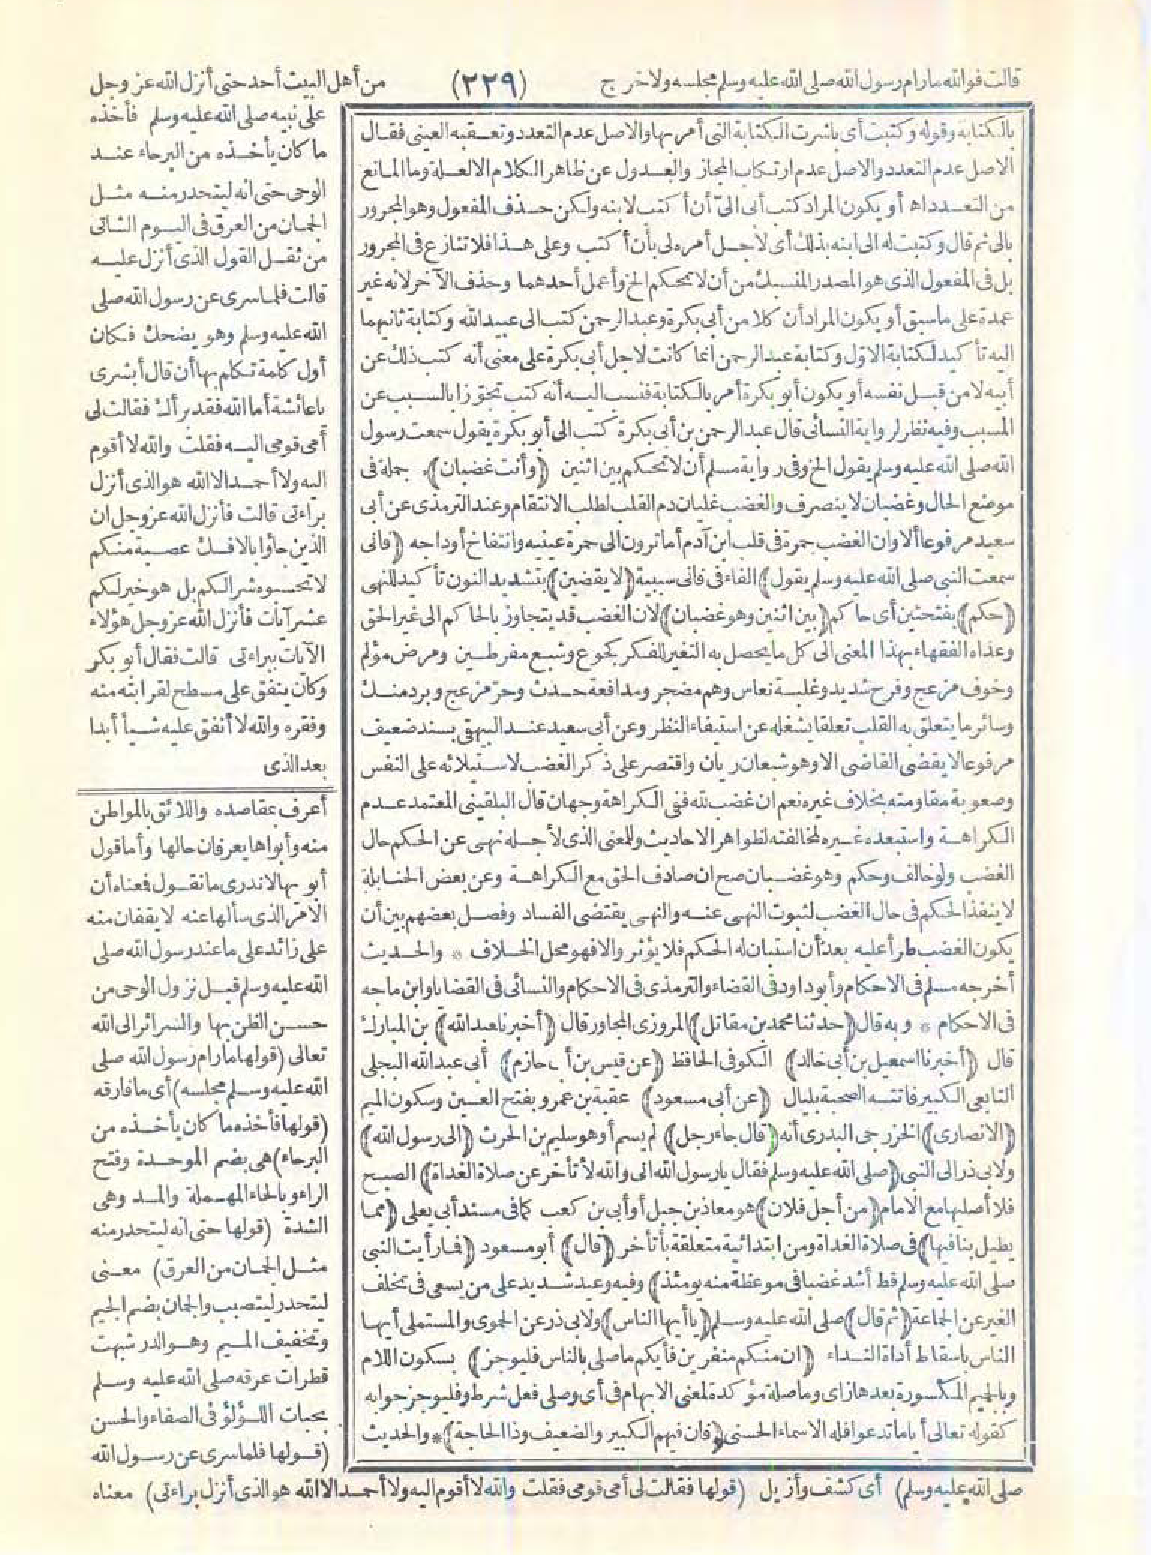 قالت فوالله مارام رسول الله صلى الله عليه وسلم مجلسه ولا خرج (٢٢٩) من أهل البيت أحد حتى أنزل الله عز وجل
بالكتابة وقوله وكتبت أى باشرت الكتابة التى أمر بها والاصل عدم التعدد وتعقبه العينى فقال
الاصل عدم التعدد والاصل عدم ارتكاب المجاز والعدول عن ظاهر الكلام الالعلة وما المانع
من التعدد اه أو يكون المراد كتب أبى الىّ أن أكتب لابنه ولكن حذف المفعول وهو المجرور
بالى ثم قال وكتبت له الى ابنه بذلك أى لأجل أمره لى بأن أكتب وعلى هذا فلا تنازع فى المجرور
بل فى المفعول الذى هو المصدر المنسبك من أن لا تحكم الخ وأعمل أحدهما وحذف الآخر لانه غير
عمدة على ما سبق أو يكون المراد أن كلا من أبى بكرة وعبد الرحمن كتب الى عبيد الله وكتابة ثانيهما
اليه تأكيد لكتابة الاول وكتابة عبد الرحمن انما كانت لاجل أبى بكرة على معنى أنه كتب ذلك عن
أبيه لا من قبل نفسه أو يكون أبو بكرة أمر بالكتابة فنسب اليه أنه كتب تجوزا بالسبب عن
المسبب وفيه نظر لرواية النسائى قال عبد الرحمن بن أبى بكرة كتب الى أبو بكرة يقول سمعت رسول
الله صلى الله عليه وسلم يقول الخ وفى رواية مسلم أن لا تحكم بين اثنين (وأنت غضبان) جملة فى
موضع الحال وغضبان لا ينصرف والغضب غليان دم القلب لطلب الانتقام وعند الترمذى عن أبى
سعيد مرفوعا ألا وان الغضب جمرة فى قلب ابن آدم أما ترون الى حمرة عينيه وانتفاخ أوداجه (فانى
سمعت النبى صلى الله عليه وسلم يقول) الفاء فى فانى سببية (لا يقضين) بتشديد النون تأكيد للنهى
(حكم) بفتحتين أى حاكم (بين اثنين وهو غضبان) لان الغضب قد يتجاوز بالحاكم الى غير الحق
وعداه الفقهاء بهذا المعنى الى كل ما يحصل به التغير للفكر كجوع وشبع مفرطين ومرض مؤلم
وخوف مزعج وفرح شديد وغلبة نعاس وهم مضجر ومدافعة حدث وحر مزعج وبرد منك
وسائر ما يتعلق به القلب تعلقا يشغله عن استيفاء النظر وعن أبى سعيد عند البيهقى بسند ضعيف
مرفوعا لا يقضى القاضى الا وهو شبعان ريان واقتصر على ذكر الغضب لاستيلائه على النفس
وصعوبة مقاومته بخلاف غيره نعم ان غضب لله ففى الكراهة وجهان قال البلقينى المعتمد عدم
الكراهة واستبعده غيره لمخالفته لظواهر الاحاديث وللمعنى الذى لأجله نهى عن الحكم حال
الغضب ولو خالف وحكم وهو غضبان صح ان صادف الحق مع الكراهة وعن بعض الحنابلة
لا ينفذ الحكم فى حال الغضب لثبوت النهى عنه والنهى يقتضى الفساد وفصل بعضهم بين أن
يكون الغضب طرأ عليه بعد أن استبان له الحكم فلا يؤثر والا فهو محل الخلاف * والحديث
أخرجه مسلم فى الاحكام وأبو داود فى القضاء والترمذى فى الاحكام والنسائى فى القضايا وابن ماجه
فى الاحكام * وبه قال (حدثنا محمد بن مقاتل) المروزى المجاور قال (أخبرنا عبد الله) بن المبارك
قال (أخبرنا اسمعيل بن أبى خالد) الكوفى الحافظ (عن قيس بن أبى حازم) أبى عبد الله البجلى
التابعى الكبير فاتته الصحبة بليال (عن أبى مسعود) عقبة بن عمرو بفتح العين وسكون الميم
(الانصارى) الخزرجى البدرى أنه (قال جاء رجل) لم يسم أو هو سليم بن الحرث (الى رسول الله)
ولابى ذر الى النبى (صلى الله عليه وسلم فقال يا رسول الله انى والله لأتأخر عن صلاة الغداة) الصبح
فلا أصليها مع الامام (من أجل فلان) هو معاذ بن جبل أو أبى بن كعب كما فى مسند أبى يعلى (مما
يطيل بنا فيها) فى صلاة الغداة ومن ابتدائية متعلقة بأتأخر (قال) أبو مسعود (فما رأيت النبى
صلى الله عليه وسلم قط أشد غضبا فى موعظة منه يومئذ) وفيه وعيد شديد على من يسعى فى تخلف
الغير عن الجماعة (ثم قال) صلى الله عليه وسلم (يا أيها الناس) ولابى ذر عن الحموى والمستملى أيها
الناس باسقاط أداة النداء (ان منكم منفرين فأيكم ما صلى بالناس فليوجز) بسكون اللام
وبالجيم المكسورة بعدها زاى وما صلة مؤكدة لمعنى الابهام فى أى وصلى فعل شرط وفليوجز جوابه
كقوله تعالى أيا ما تدعوا فله الاسماء الحسنى (فان فيهم الكبير والضعيف وذا الحاجة) * والحديث
على نبيه صلى الله عليه وسلم فأخذه
ما كان يأخذه من البرحاء عند
الوحى حتى انه ليتحدر منه مثل
الجمان من العرق فى اليوم الشاتى
من ثقل القول الذى أنزل عليه
قالت فلما سرى عن رسول الله صلى
الله عليه وسلم وهو يضحك فكان
أول كلمة تكلم بها أن قال أبشرى
يا عائشة أما الله فقد برأك فقالت لى
أمى قومى اليه فقلت والله لا أقوم
اليه ولا أحمد الا الله هو الذى أنزل
براءتى قالت فأنزل الله عز وجل ان
الذين جاؤا بالافك عصبة منكم
لا تحسبوه شرا لكم بل هو خير لكم
عشر آيات فأنزل الله عز وجل هؤلاء
الآيات ببراءتى قالت فقال أبو بكر
وكان ينفق على مسطح لقرابته منه
وفقره والله لا أنفق عليه شيأ أبدا
بعد الذى
أعرف بمقاصده واللائق بالمواطن
منه وأبواها يعرفان حالها وأما قول
أبويها لا ندرى ما نقول فمعناه أن
الامر الذى سألها عنه لا يقفان منه
على زائد على ما عند رسول الله صلى
الله عليه وسلم قبل نزول الوحى من
حسن الظن بها والسرائر الى الله
تعالى (قولها ما رام رسول الله صلى
الله عليه وسلم مجلسه) أى ما فارقه
(قولها فأخذه ما كان يأخذه من
البرحاء) هى بضم الموحدة وفتح
الراء وبالحاء المهملة والمد وهى
الشدة (قولها حتى انه ليتحدر منه
مثل الجمان من العرق) معنى
ليتحدر ليتصبب والجمان بضم الجيم
وتخفيف الميم وهو الدر شبهت
قطرات عرقه صلى الله عليه وسلم
بحبات اللؤلؤ فى الصفاء والحسن
(قولها فلما سرى عن رسول الله
صلى الله عليه وسلم) أى كشف وأزيل (قولها فقالت لى أمى قومى فقلت والله لا أقوم اليه ولا أحمد الا الله هو الذى أنزل براءتى) معناه